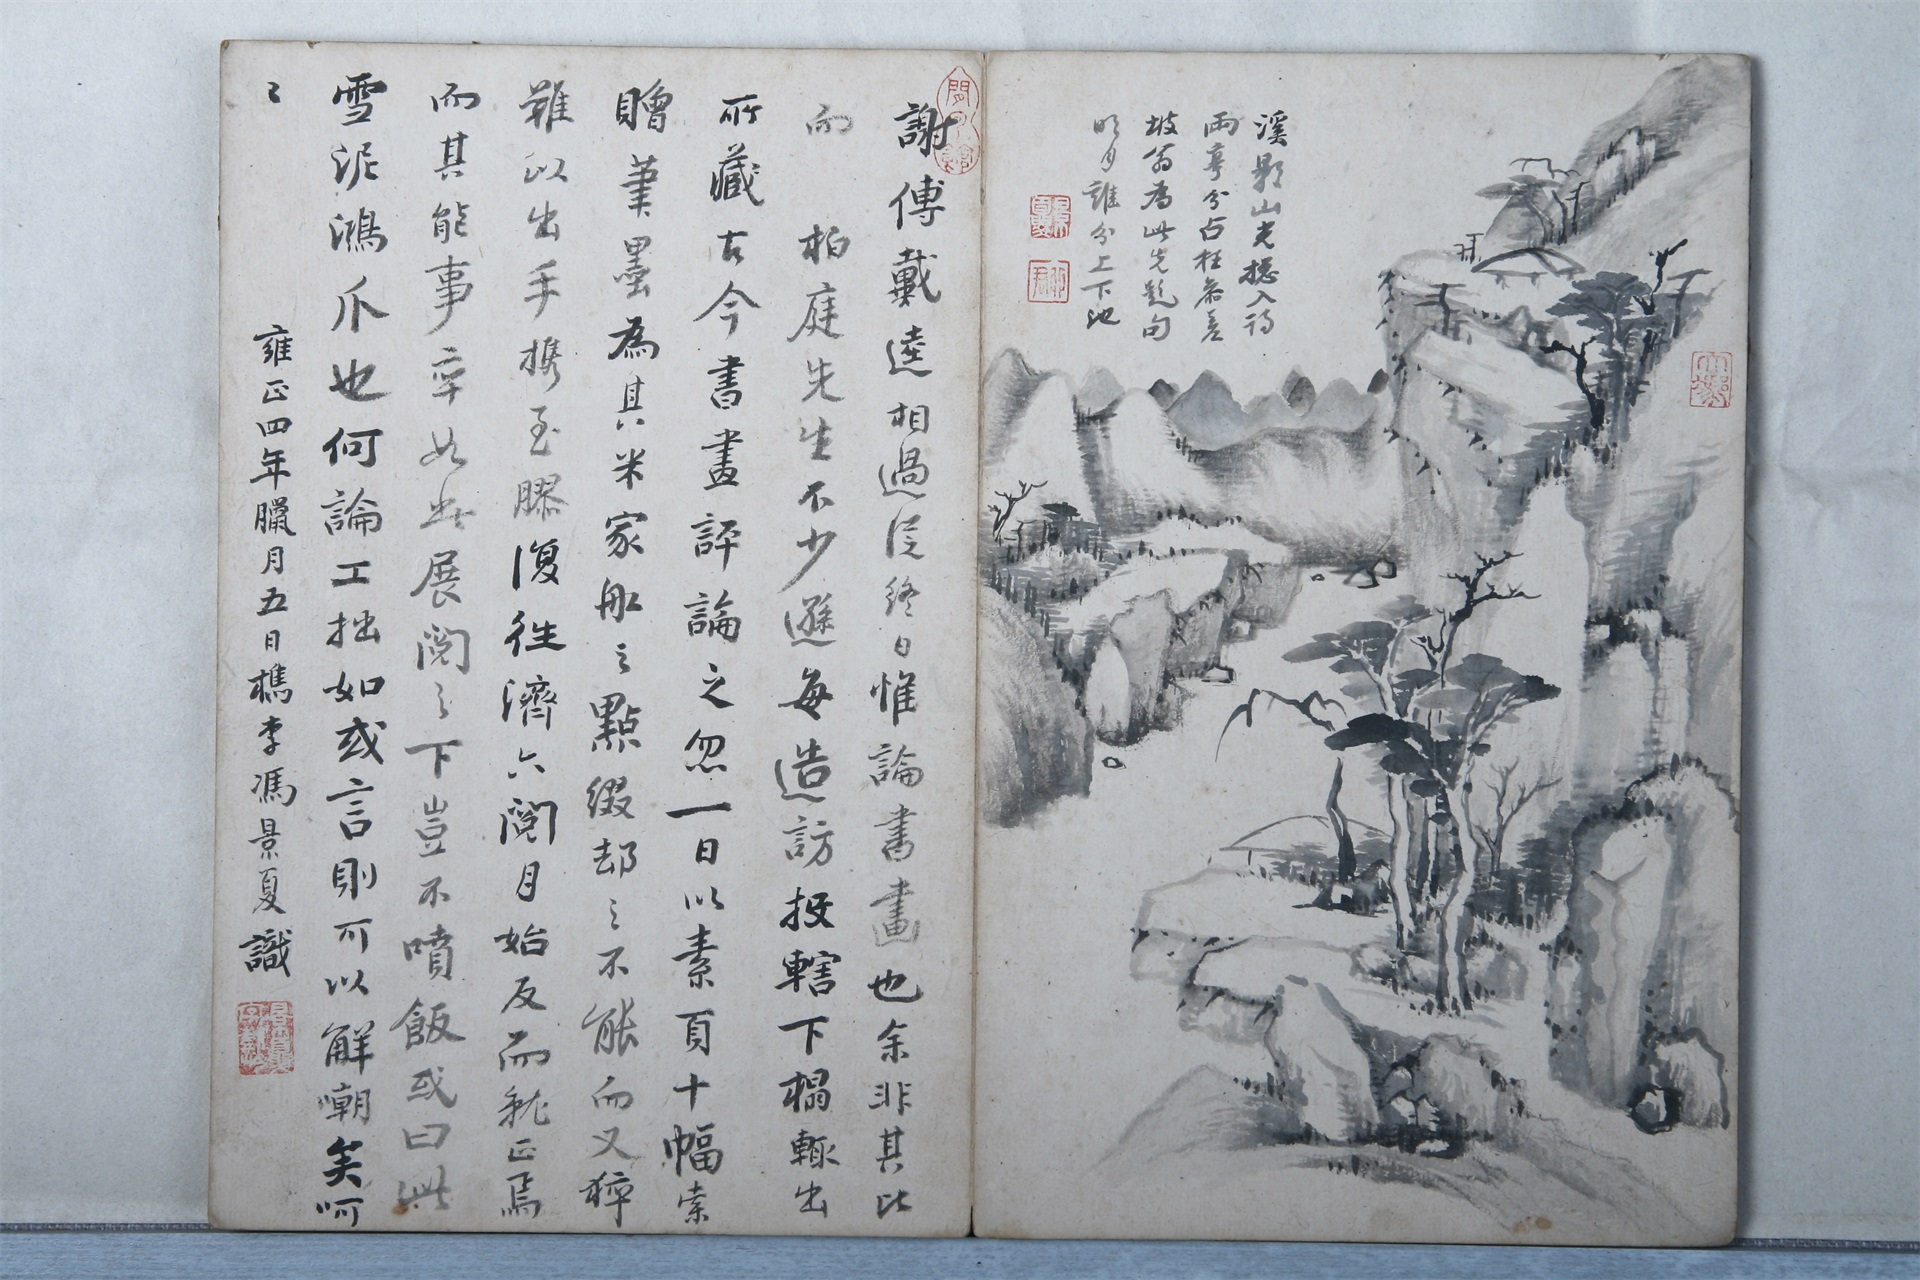 溪影山光揔入詩
兩亭分占桂參差
坡翁為此先題句
明月誰分上下池
謝傅戴逵相過從終日惟論書畫也余非其比
而柏庭先生不少遜每造訪投轄下榻輒出
所藏古今書畫評論之忽一日以素頁十幅索
贈筆墨為其米家船之點綴却之不能而又穉
難以出手攜至膠復徃濟六閱月始反而就正焉
而其能事率如此展閱之下豈不噴飯或曰此
雪泥鴻爪也何論工拙如或言則可以解嘲矣呵
〻
雍正四年臘月五日檇李馮景夏識